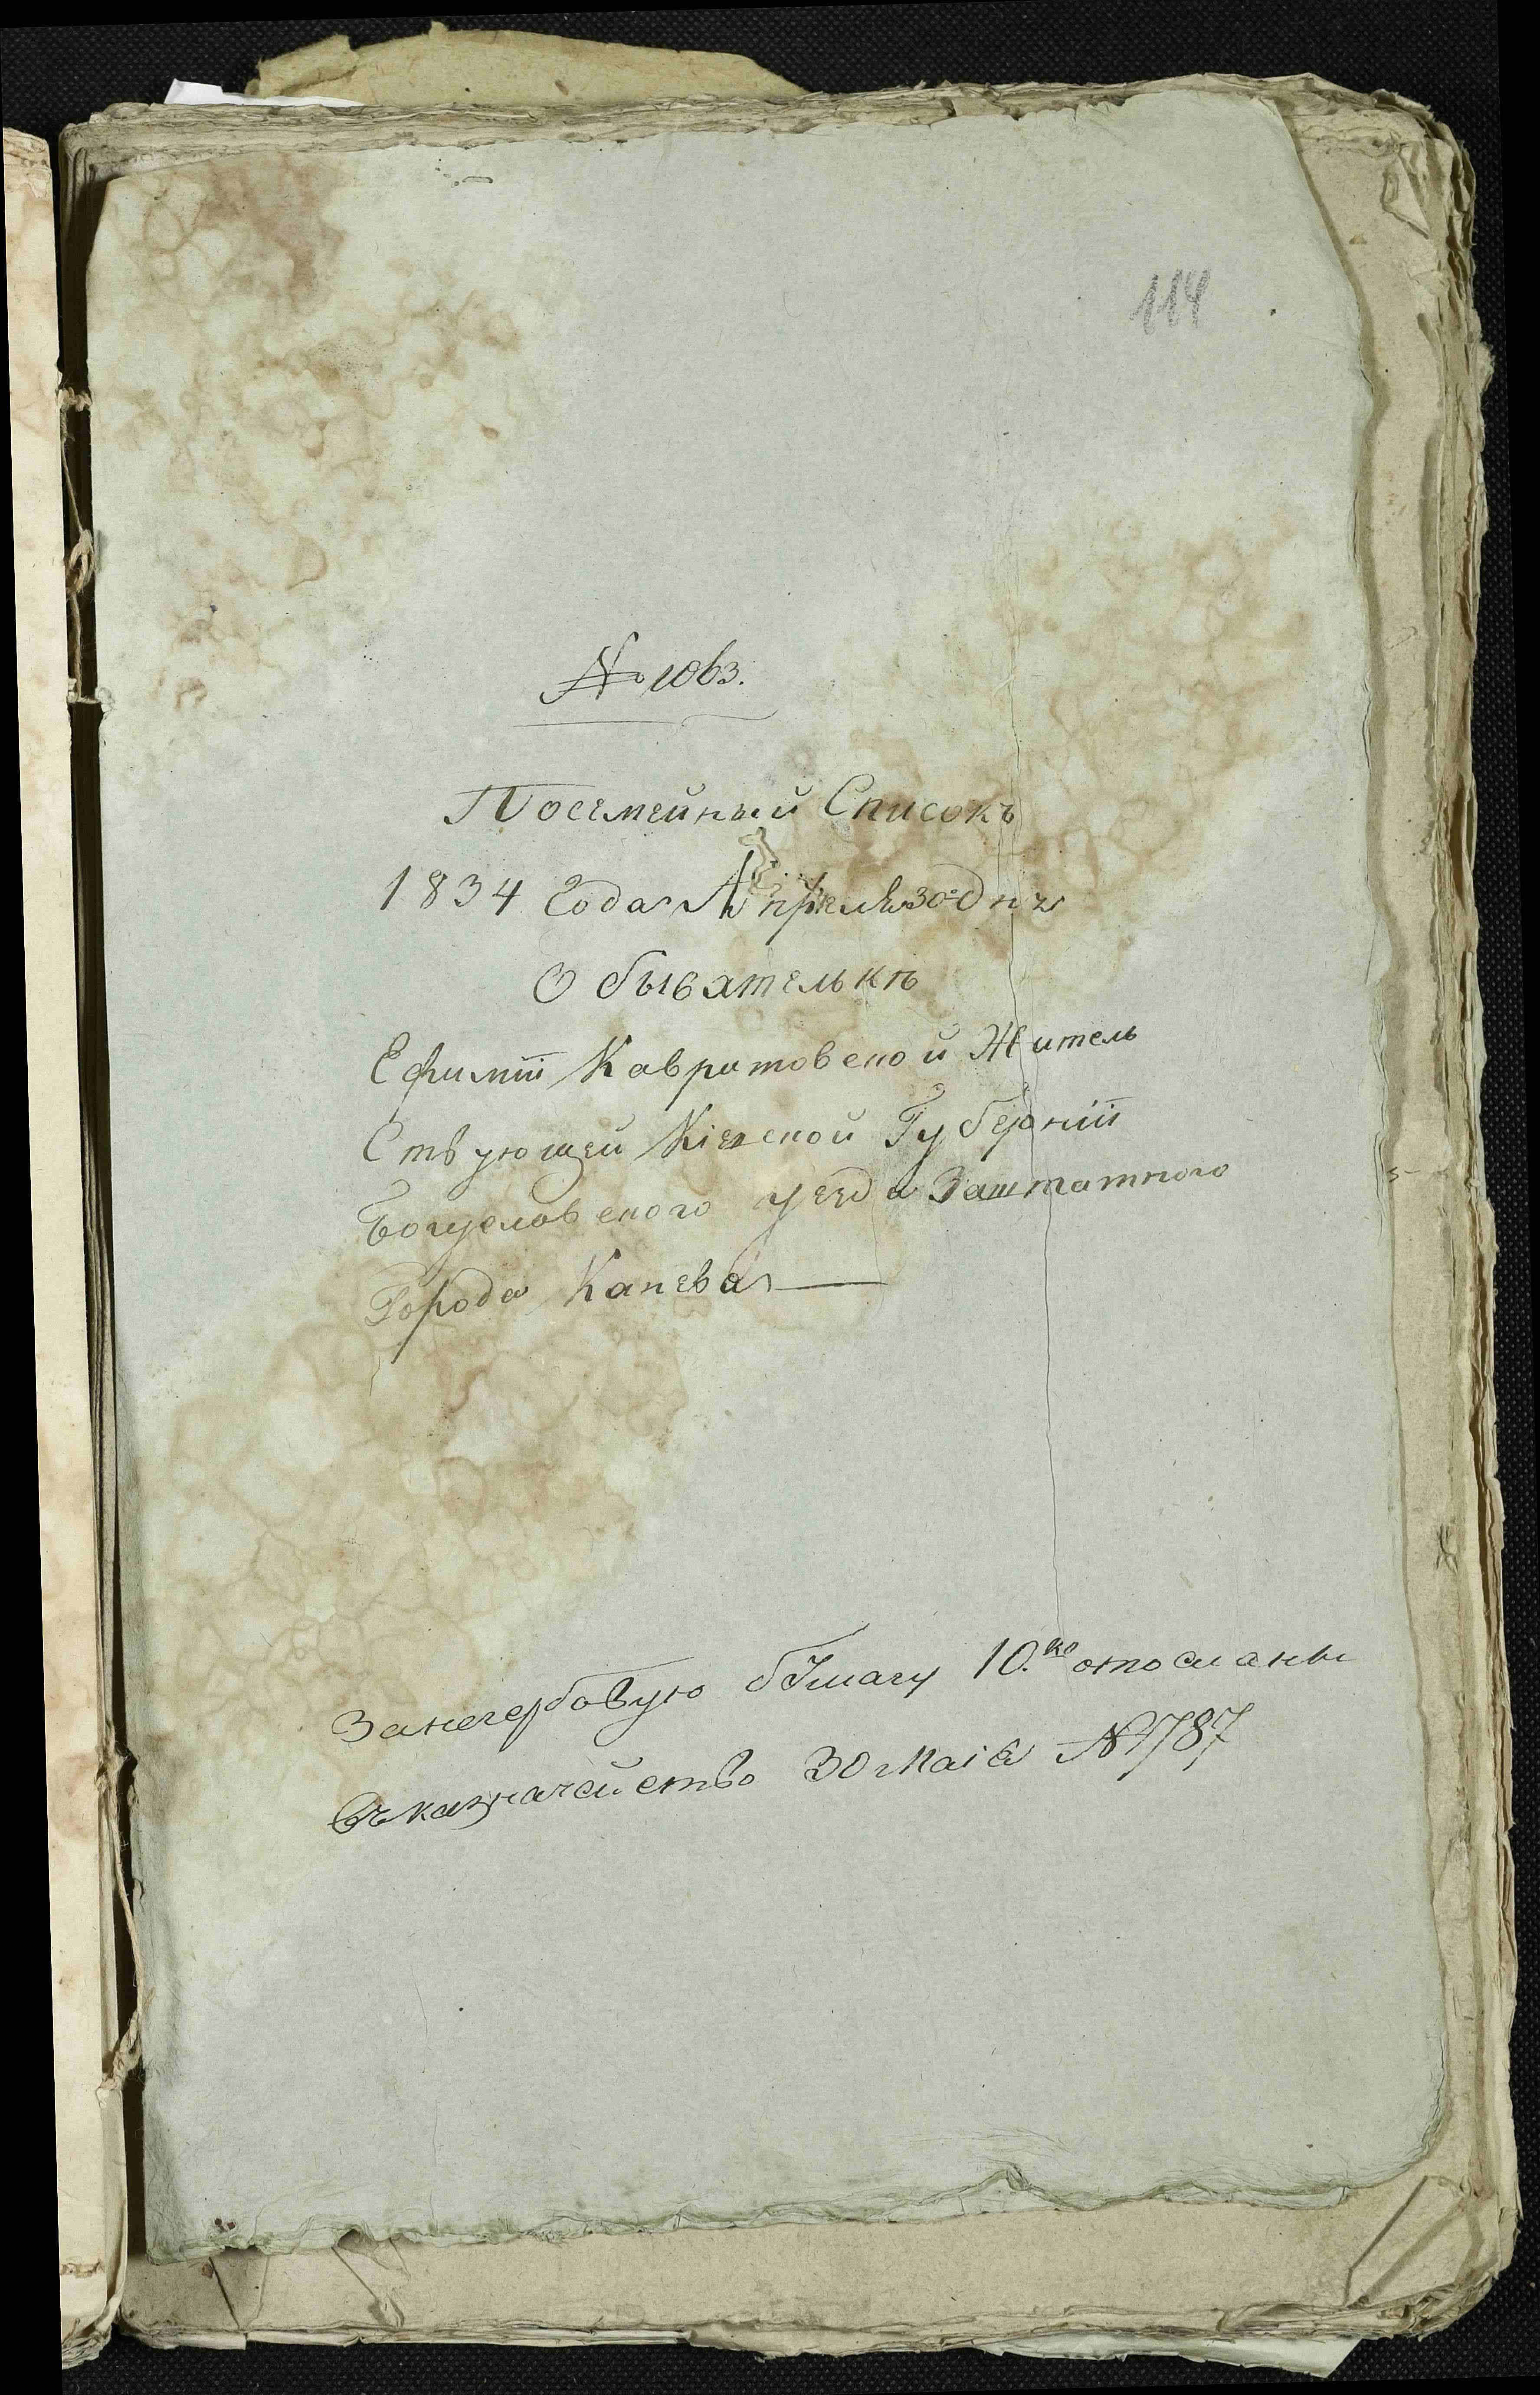 114
№ 1063.
Посемейный Списокъ
1834 Года Апреля 30 дня
О бывателькѣ
Ефиміи Кавратовской Житель
Ствующей Кіевской Губерніи
Богуславского уезда Заштатного
Города Канева
За негербовую бумагу 10.ко отосланы
въ казначейство 30 Маія №1787